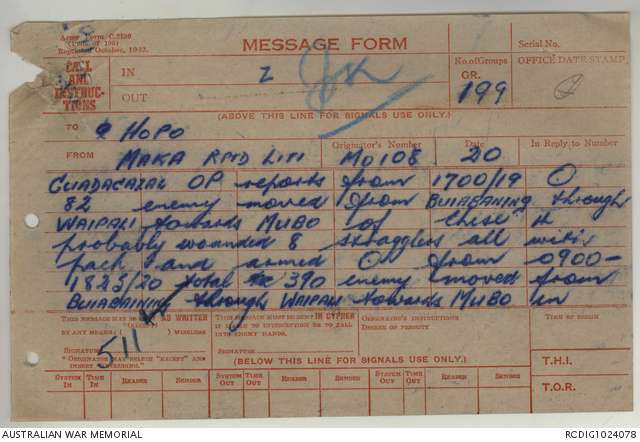 Army Form C.2136
Reprinted October, 1942.
MESSAGE FORM
Serial No.
CALL AND INSTRUCTIONS
IN
2
No. of Groups GR.
199
OFFICE DATE STAMP
OUT
(ABOVE THIS LINE FOR SIGNALS USE ONLY.)
TO HOPO
FROM Originator's Number Date In Reply to Number
MAKA MO108 20
GUADAGAZAL OP reports from 1700/19 O
82 enemy moved from BUIABAINING through
WAIPALI towards MUBO of these 14
probably wounded 8 stragglers all with
pack and armed O from 0900-
1825/20 total 390 enemy moved from
BUIABAINING through WAIPALI towards MUBO in
THIS MESSAGE MAY BE SENT AS WRITTEN
BY ANY MEANS (EXCEPT) WIRELESS
SIGNATURE
THIS MESSAGE MUST BE SENT IN CYPHER
IF LIABLE TO INTERCEPTION OR TO FALL
INTO ENEMY HANDS.
SIGNATURE
ORIGINATOR'S INSTRUCTIONS
DEGREE OF PRIORITY
TIME OF ORIGIN
511
(BELOW THIS LINE FOR SIGNALS USE ONLY.)
T.H.I.
SYSTEM IN TIME IN READER SENDER SYSTEM OUT TIME OUT READER SENDER SYSTEM OUT TIME OUT READER SENDER
T.O.R.
AUSTRALIAN WAR MEMORIAL
RCDIG1024078